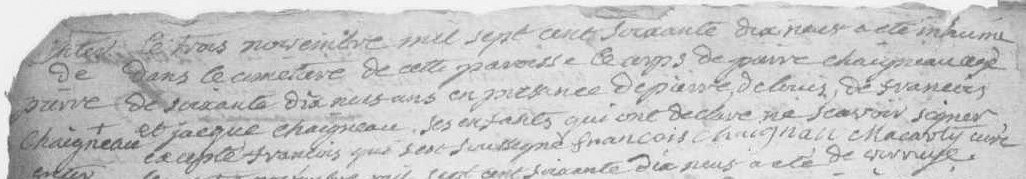 enter. Le trois novembre mil sept cent soixante dix neuf a eté inhumé
de dans le cimetiere de cette paroisse le corps de pierre chaigneau agé
pierre de soixante dix neuf ans en presence de pierre, de louis, de francois
Chaigneau et jacque chaigneau, ses enfants, qui ont declaré ne scavoir signer
excepté francois qui s'est soussigné francois Chaignau Macarty curé
enter le novembre mil sept cent soixante dix neuf a eté